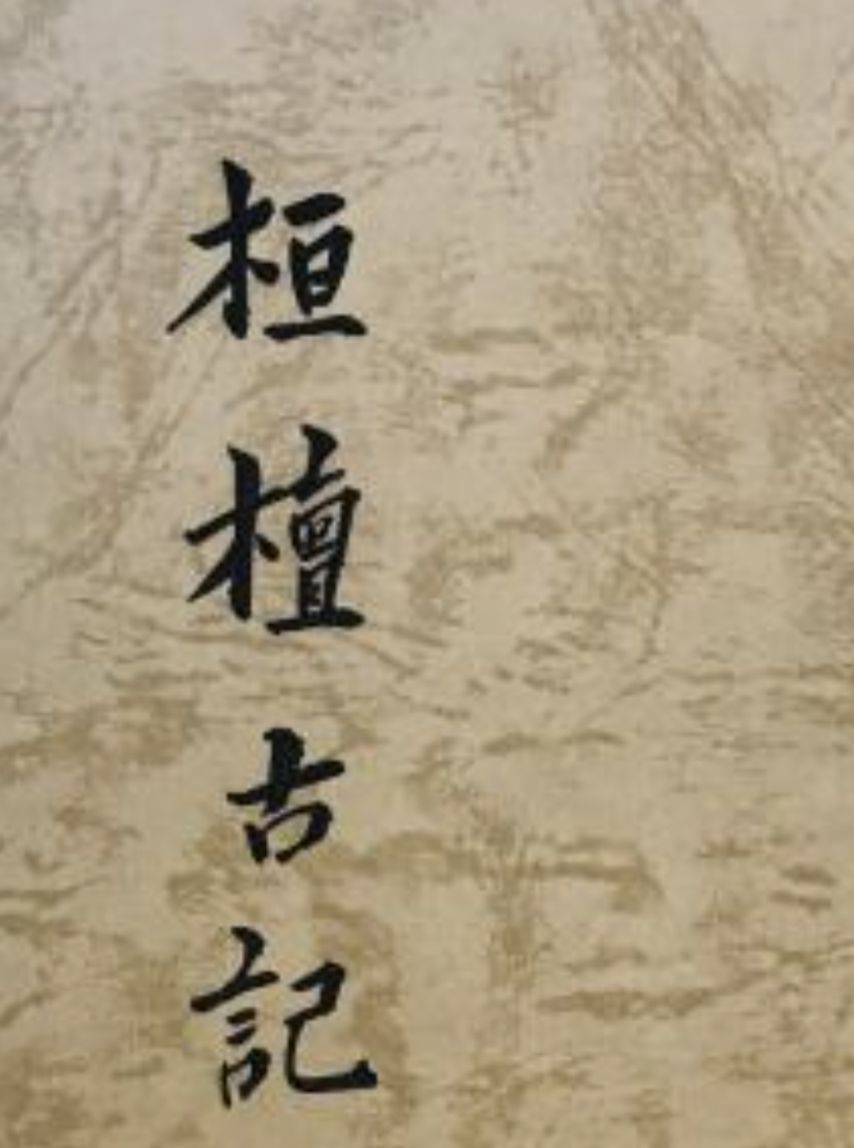 桓檀古記